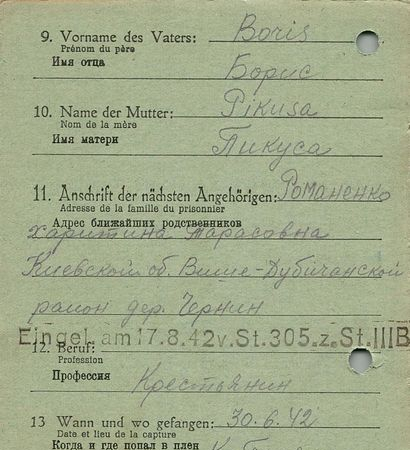 9. Vorname des Vaters: Boris
Prénom du père
Имя отца
Борис
10. Name der Mutter: Pikusa
Nom de la mère
Имя матери
Пикуса
11. Anschrift der nächsten Angehörigen: Романенко
Adresse de la famille du prisonnier
Адрес ближайших родственников
Харитина Тарасовна
Киевской об. Више-Дубичанской
район дер. Чернин
Eingel. am 17.8.42 v. St. 305. z. St. III B
12. Beruf:
Profession
Профессия
Крестьянин
13 Wann und wo gefangen: 30.6.42
Date et lieu de la capture
Когда и где попал в плен